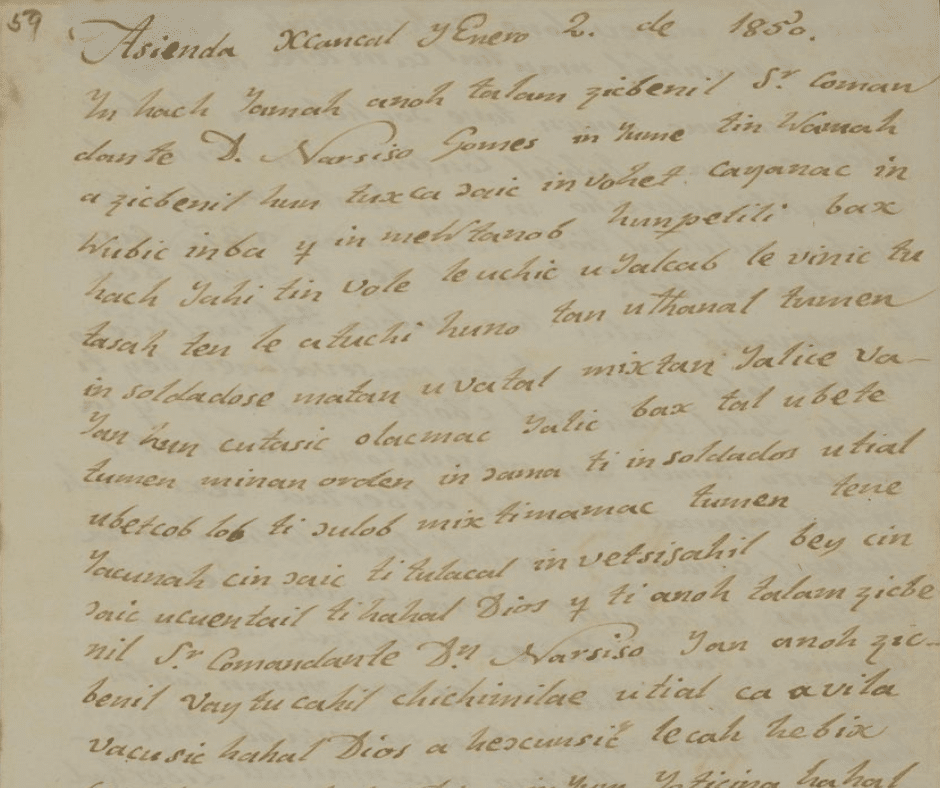 59
Asienda Xcancal y Enero 2. de 1850.
In hach Yamah anoh talam zicbenil Sr. Coman
dante D. Narsiso Gomes in Yume tin Wamah
a zicbenil hun tuxca ɔaic in vohet cayanac in
Wubic inba y in mehtanob hunpeliti bax
hach Yahi tin vole le uchic u Yalcab le vinic tu
tasah ten le atuchi huno tan uthanal tumen
in soldadose matan u vatal mixtan Yalice va-
Yan hun cutasic olacmac Yalic bax tal ubete
tumen minan orden in ɔama ti in soldados utial
ubetcob lob ti ɔulob mix timamac tumen tene
Yacunah cin ɔaic ti tulacal in vetsisahil bey cin
ɔaic ucuentail ti hahal Dios y ti anoh talam zicbe
nil Sr. Comandante Dn Narsiso Yan anoh zic-
benil vay tu cahil chichimilae utial ca a vila
vacusic hahal Dios a hexcunsic le cah hebix
hahal